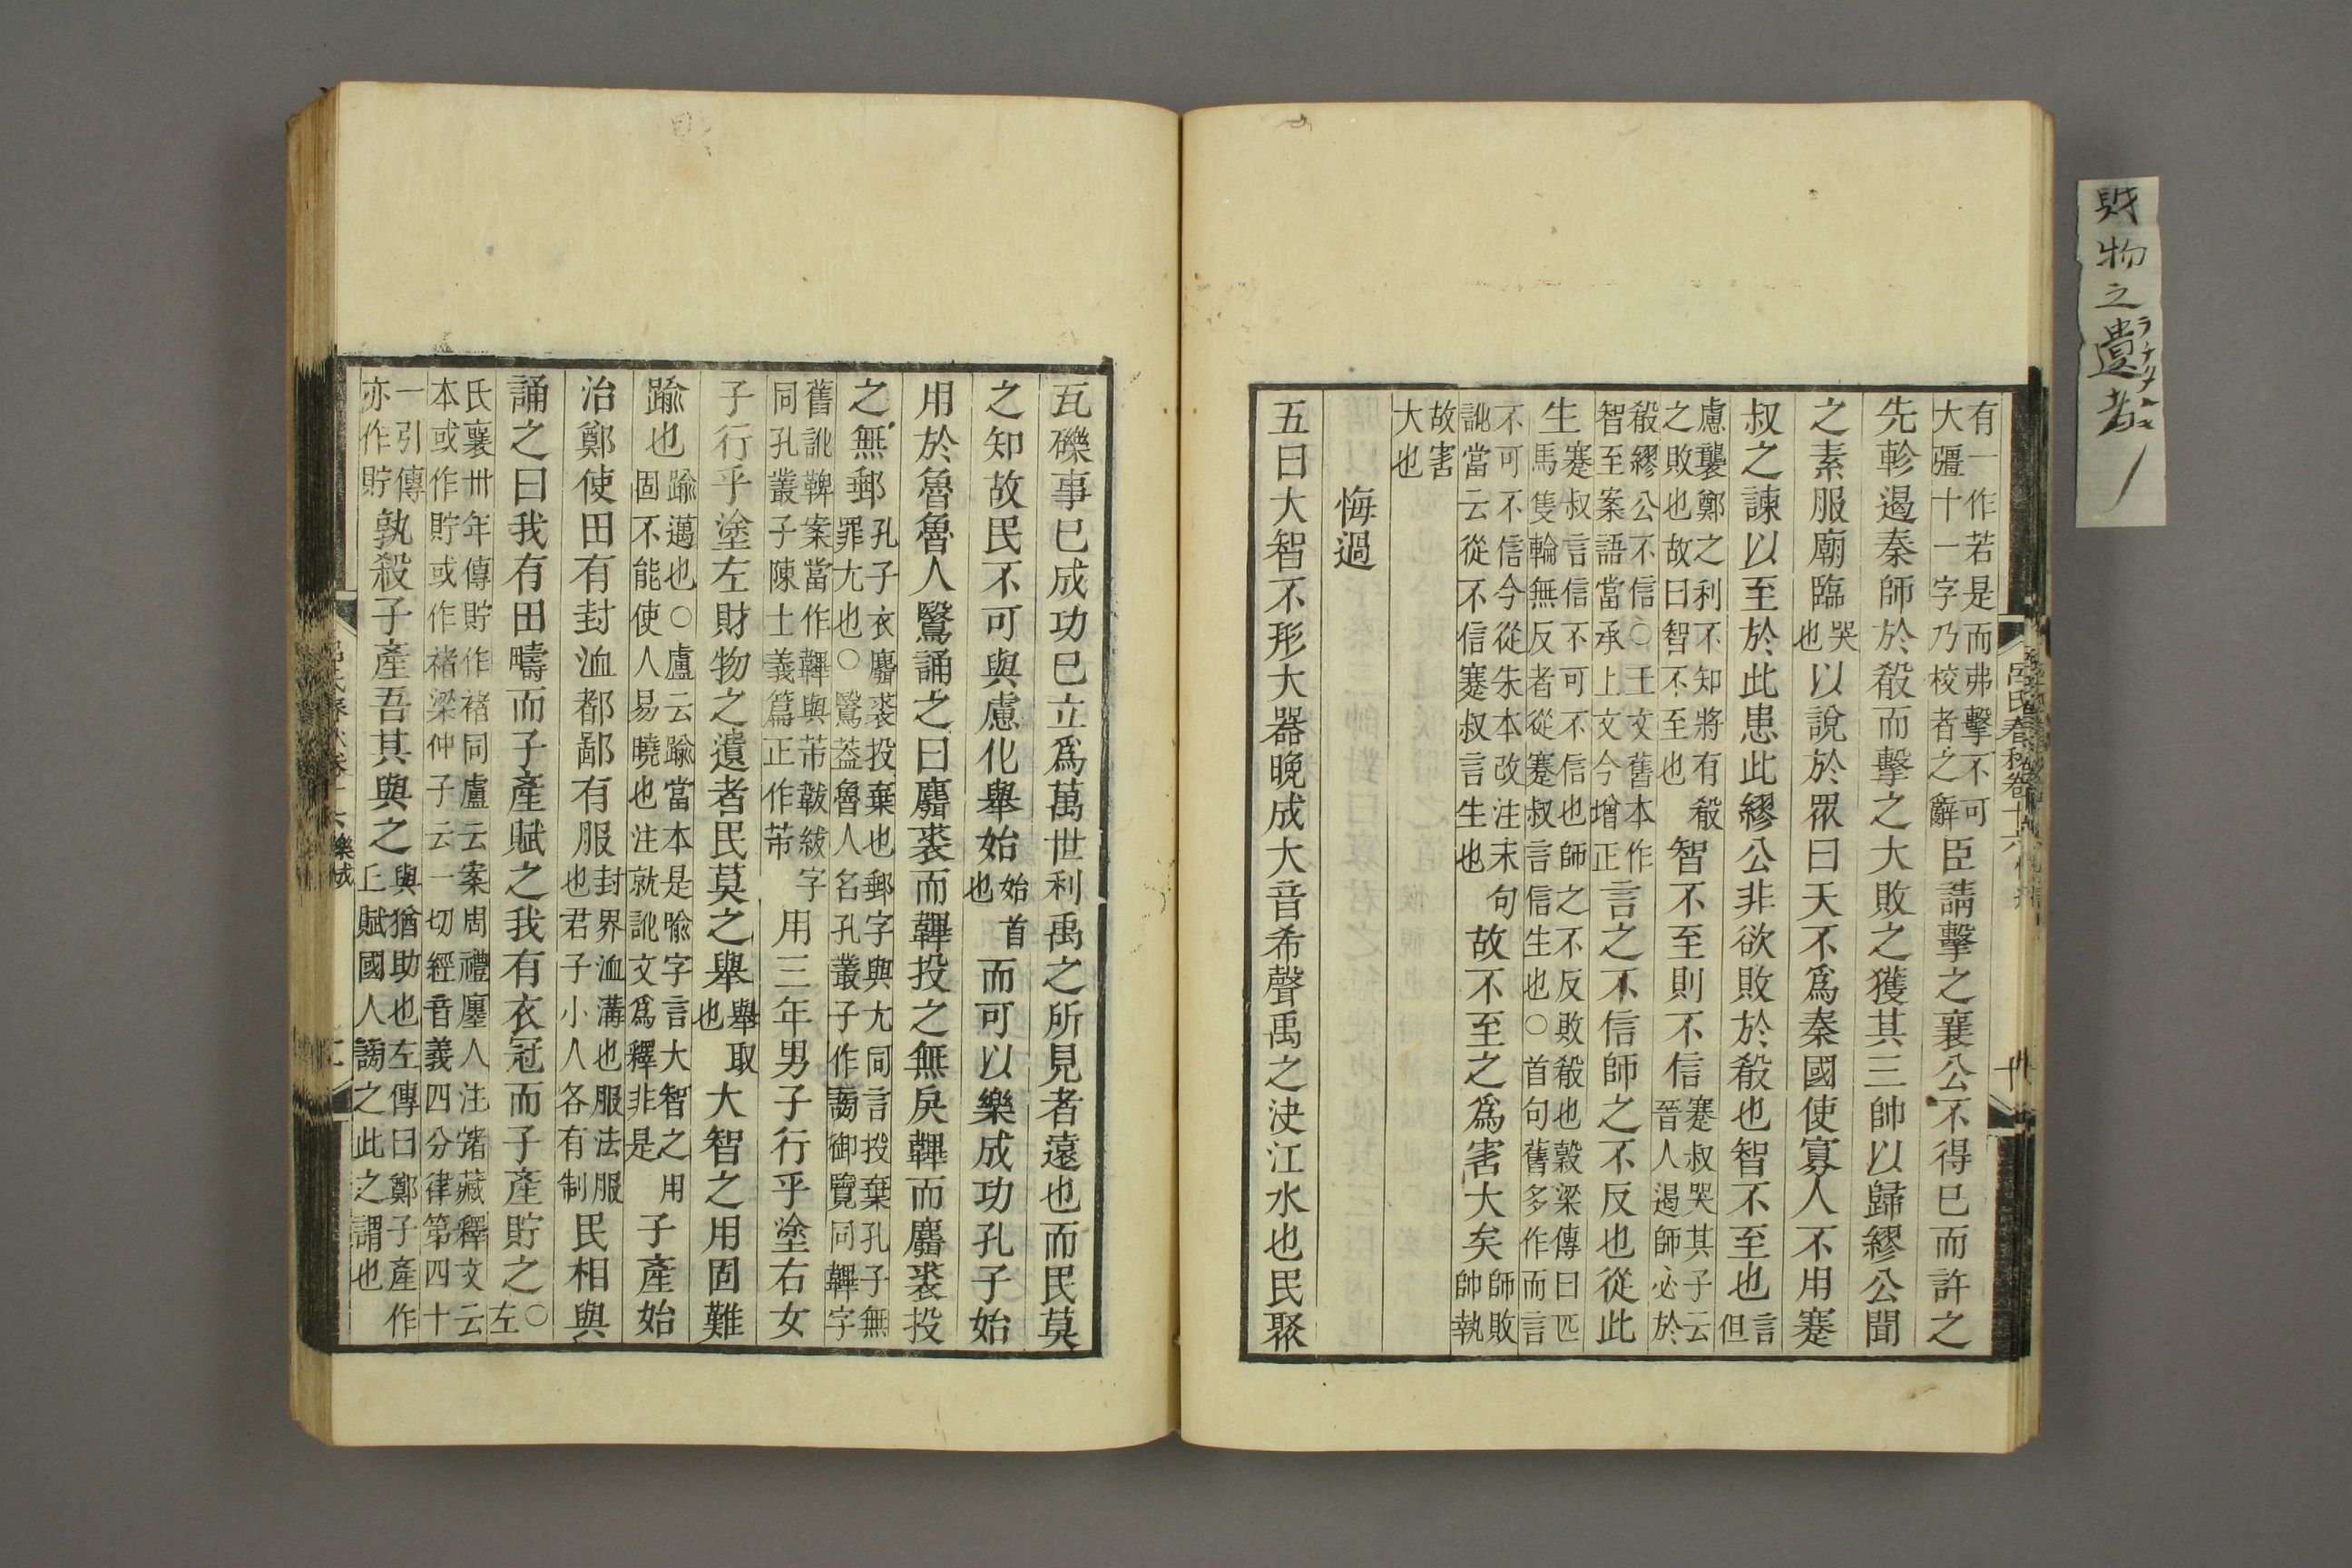 有一作若是而弗擊不可
大彊十一字乃校者之辭
臣請擊之襄公不得已而許之
先軫遏秦師於殽而擊之大敗之獲其三帥以歸繆公聞
之素服廟臨哭也以說於眾曰天不爲秦國使寡人不用蹇
叔之諫以至於此患此繆公非欲敗於殽也智不至也言但
慮襲鄭之利不知將有殽
之敗也故曰智不至也
智不至則不信
蹇叔哭其子云
晉人遏師必於
殽繆公不信○王文舊本作
智至案語當承上文今增正
言之不信師之不反也從此
生
蹇叔言信不可不信也師之不反敗殽也穀梁傳曰匹
馬隻輪無反者從蹇叔言信生也○首句舊多作而言
不可不信今從朱本改注末句
訛當云從不信蹇叔言生也
故不至之爲害大矣
師敗
帥執
故害
大也
悔過
五曰大智不形大器晚成大音希聲禹之決江水也民聚
呂氏春秋卷十六
瓦礫事已成功已立爲萬世利禹之所見者遠也而民莫
之知故民不可與慮化舉始始首也而可以樂成功孔子始
用於魯魯人鷖誦之曰麛裘而韠投之無戾韠而麛裘投
之無郵
孔子衣麛裘投棄也郵字與尤同言投棄孔子無
罪尤也○鷖葢魯人名孔叢子作謗御覽同韠字
舊訛鞞案當作韠與芾韍紱字
同孔叢子陳士義篇正作芾
用三年男子行乎塗右女
子行乎塗左財物之遺者民莫之舉舉取也大智之用固難
踰也
踰邁也○盧云踰當本是喻字言大智之用
固不能使人易曉也注就訛文爲釋非是
子產始
治鄭使田有封洫都鄙有服
封界洫溝也服法服
也君子小人各有制
民相與
誦之曰我有田疇而子產賦之我有衣冠而子產貯之○左
氏襄卅年傳貯作褚同盧云案周禮廛人注㡯藏釋文云
本或作貯或作褚梁仲子云一切經音義四分律第四十
一引傳
亦作貯
孰殺子產吾其與之
與猶助也左傳曰鄭子產作
丘賦國人謗之此之謂也
樂成
財物之遺者